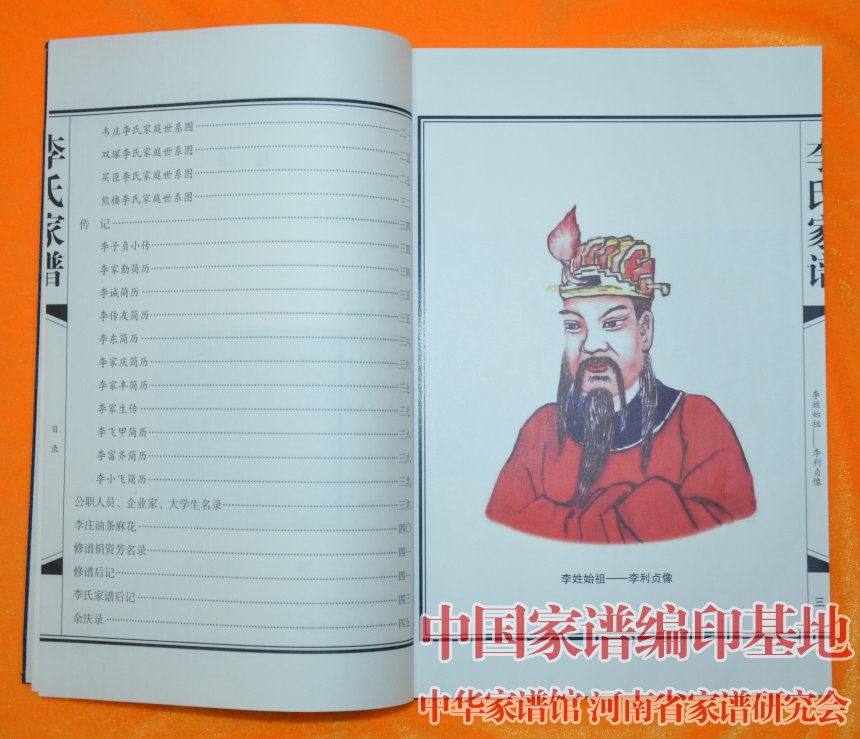 李氏家谱
目录
韦庄李氏家庭世系图……二一
双塚李氏家庭世系图……二五
买臣李氏家庭世系图……二七
熊楼李氏家庭世系图……三二
传 记……三四
李子贞小传……三四
李家勤简历……三四
李诚简历……三五
李传友简历……三五
李东简历……三六
李家庆简历……三六
李家丰简历……三七
李家生传……三七
李飞甲简历……三八
李富齐简历……三八
李小飞简历……三九
公职人员、企业家、大学生名录……三九
李庄油条麻花……四〇
修谱捐资芳名录……四一
修谱后记……四一
李氏家谱后记……四三
余庆录……四五
李姓始祖——李利贞像
李氏家谱
李姓始祖——李利贞像
三
中国家谱编印基地
中华家谱馆 河南省家谱研究会